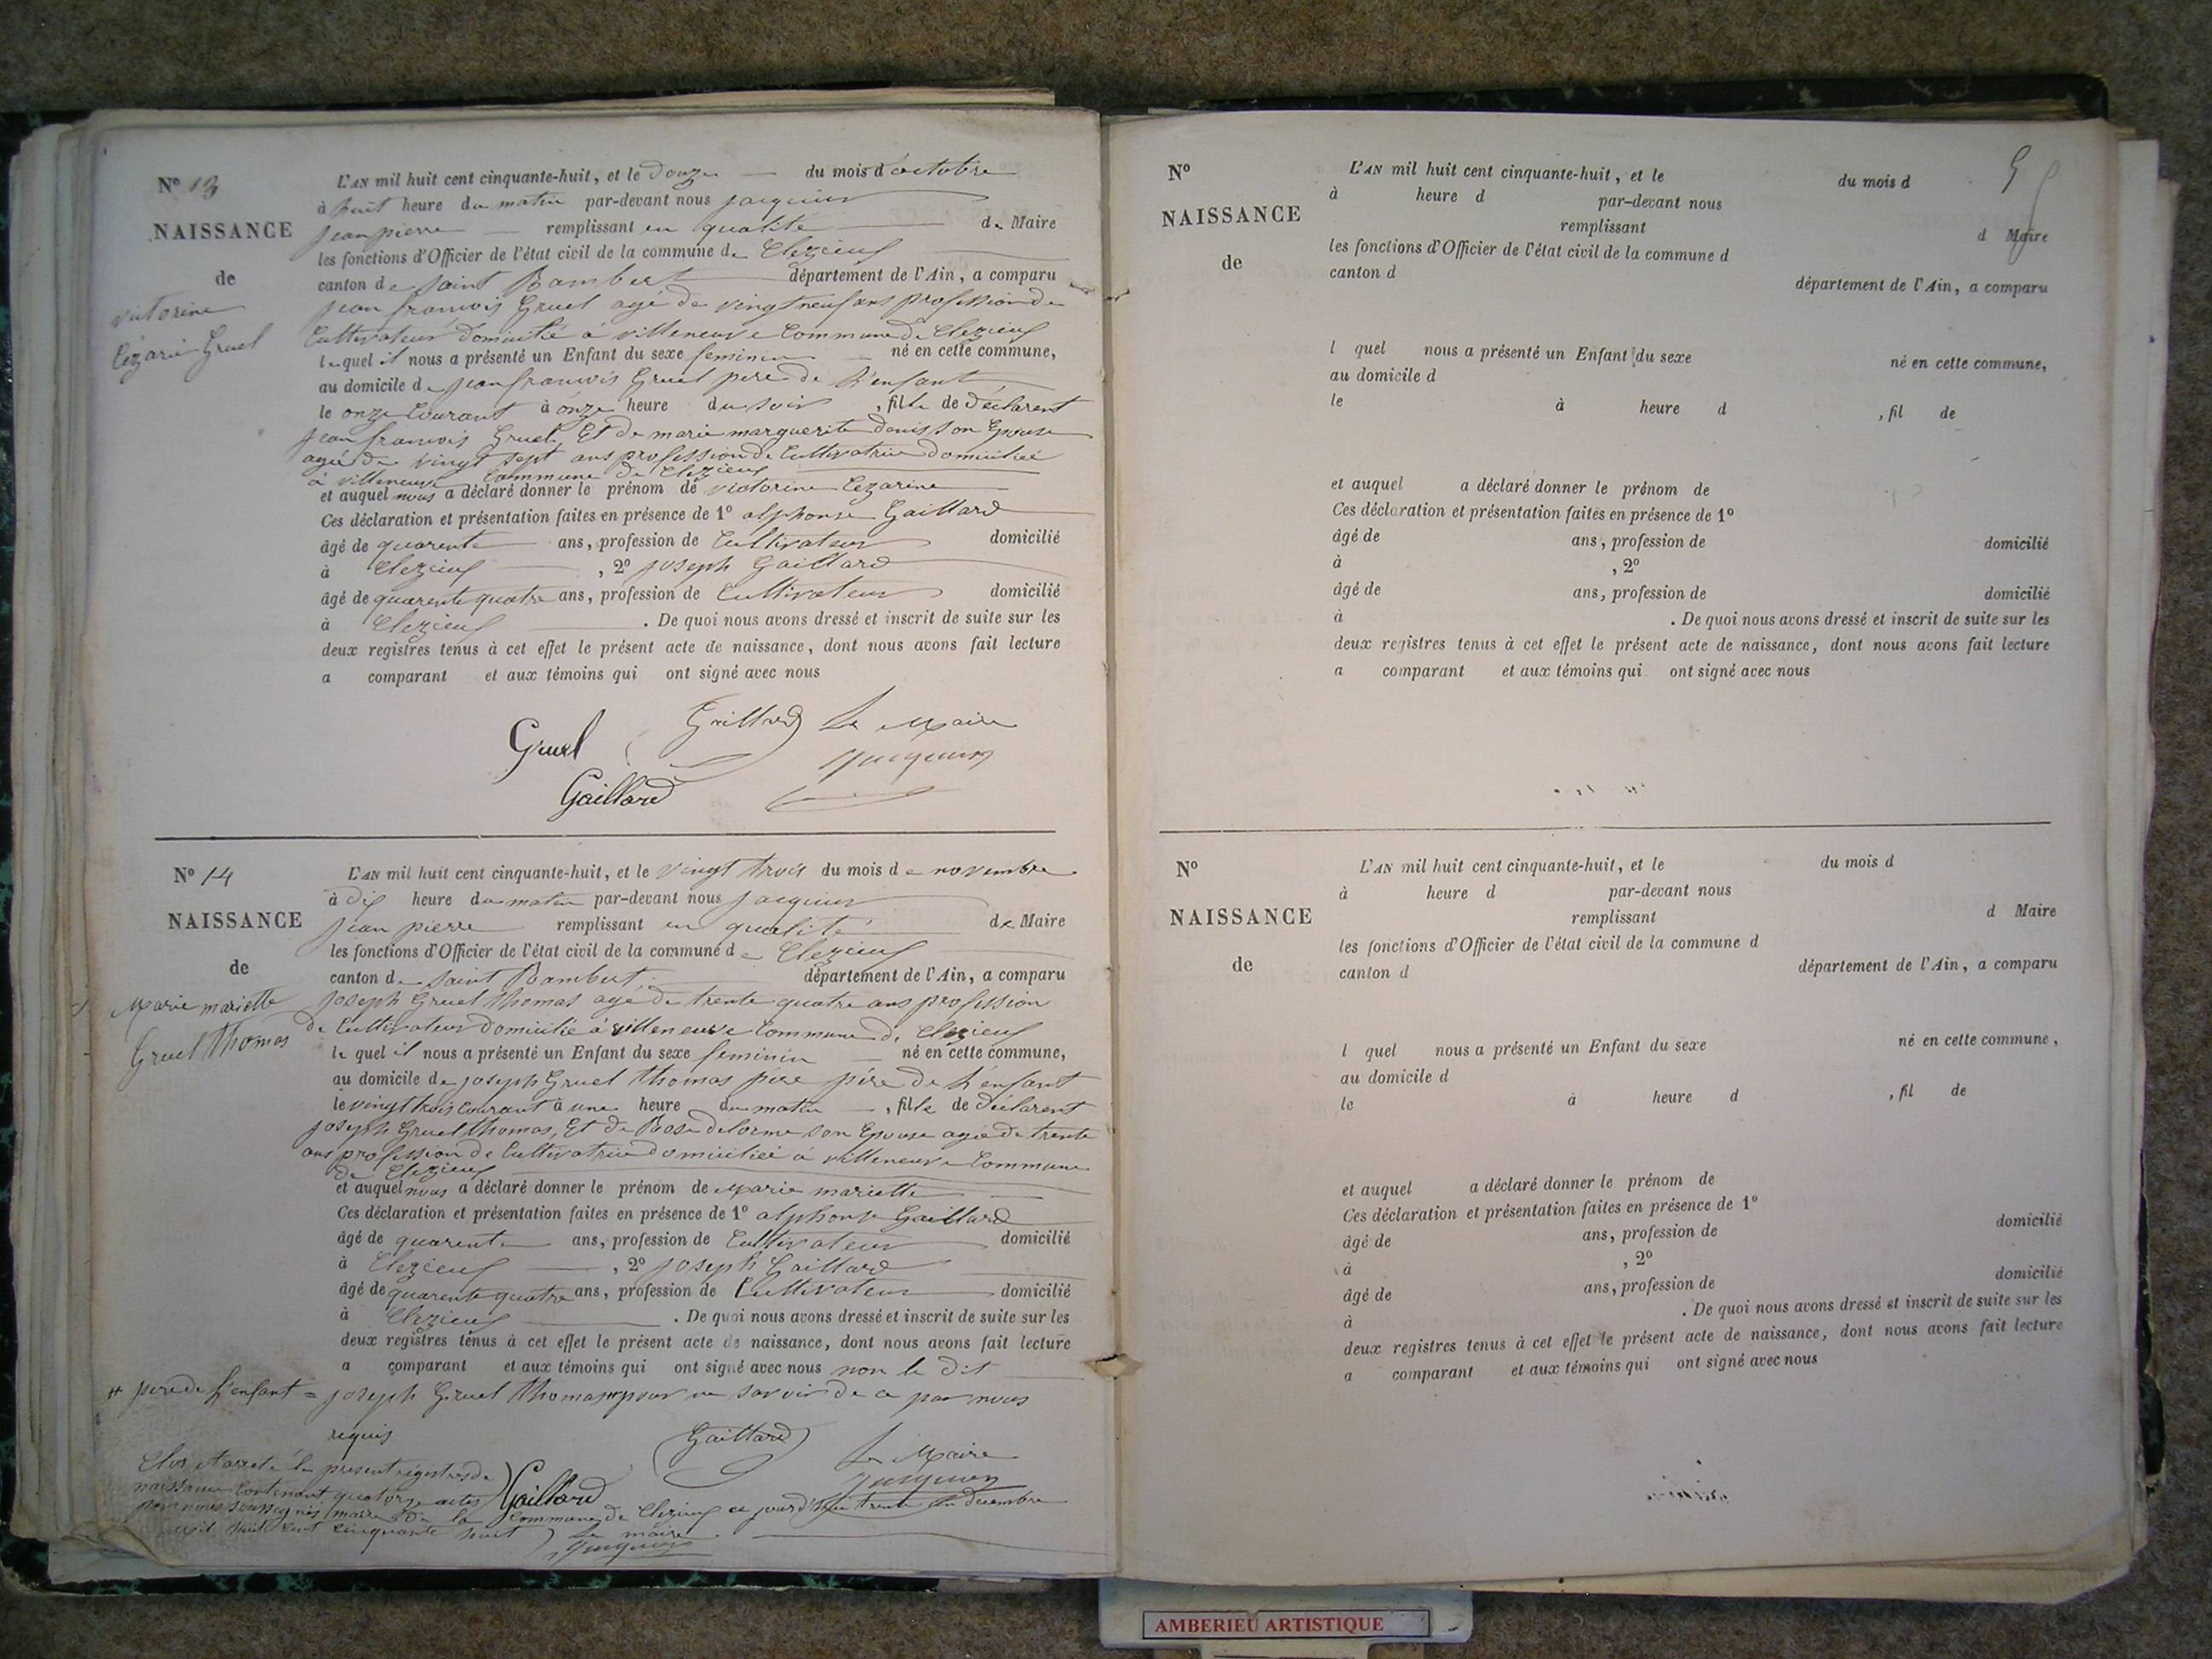 N° 13
NAISSANCE
de
victorine
Cézarie Gruel
L'AN mil huit cent cinquante-huit, et le douze du mois d'octobre
à huit heure du matin par-devant nous jacquier
jean pierre remplissant en qualité de Maire
les fonctions d'Officier de l'état civil de la commune de Clezieuf
canton de saint Rambert département de l'Ain, a comparu
jean françois Gruel agé de vingt neuf ans profession de
Cultivateur domicilié à villeneuve Commune de Clezieuf
lequel il nous a présenté un Enfant du sexe feminin né en cette commune,
au domicile de jean françois Gruel pere de l'enfant
le onze Courant à onze heure du soir, fille de déclarent
jean franwois Gruel, Et de marie marguerite denis son Epouse
agée de vingt sept ans profession de Cultivatrice domiciliée
à villeneuve Commune de Clezieuf
et auquel nous a déclaré donner le prénom de victorine Cezarine
Ces déclaration et présentation faites en présence de 1° alphonse Gaillard
âgé de quarente ans, profession de Cultivateur domicilié
à Clezieuf, 2° joseph Gaillard
âgé de quarente quatre ans, profession de Cultivateur domicilié
à Clezieuf. De quoi nous avons dressé et inscrit de suite sur les
deux registres tenus à cet effet le présent acte de naissance, dont nous avons fait lecture
a comparant et aux témoins qui ont signé avec nous
Gruel Gaillard Le Maire
jacquier
Gaillard
N° 14
NAISSANCE
de
Marie mariette
Gruel Thomas
L'AN mil huit cent cinquante-huit, et le vingt trois du mois de novembre
à dix heure du matin par-devant nous jacquier
jean pierre remplissant en qualité de Maire
les fonctions d'Officier de l'état civil de la commune de Clezieuf
canton de saint Rambert département de l'Ain, a comparu
joseph Gruel thomas agé de trente quatre ans profession
de Cultivateur domicilié à villeneuve Commune de Clezieuf
lequel il nous a présenté un Enfant du sexe feminin né en cette commune,
au domicile de joseph Gruel thomas père père de l'enfant
le vingt trois courant à une heure du matin, fille de déclarent
joseph Gruel thomas, Et de Rose delorme son Epouse agée de trente
ans profession de Cultivatrice domiciliée à villeneuve Commune
de Clezieuf
et auquel nous a déclaré donner le prénom de Marie mariette
Ces déclaration et présentation faites en présence de 1° alphonse Gaillard
âgé de quarente ans, profession de Cultivateur domicilié
à Clezieuf, 2° joseph Gaillard
âgé de quarente quatre ans, profession de Cultivateur domicilié
à Clezieuf. De quoi nous avons dressé et inscrit de suite sur les
deux registres tenus à cet effet le présent acte de naissance, dont nous avons fait lecture
a comparant et aux témoins qui ont signé avec nous non le dit
# pere de l'enfant = joseph Gruel thomas # pour ne savoir de ce par nous
requis
Gaillard Le Maire
jacquier
Gaillard
Clos et arreté le present régistres de
naissance Contenant quatorze actes
par nous soussignés maire de la Commune de Clezieuf ce jourd'hui trente un decembre
mil huit cent cinquante huit Le maire
jacquier
5
N°
NAISSANCE
de
L'AN mil huit cent cinquante-huit, et le du mois d
à heure d par-devant nous
remplissant d Maire
les fonctions d'Officier de l'état civil de la commune d
canton d département de l'Ain, a comparu
l quel nous a présenté un Enfant du sexe né en cette commune,
au domicile d
le à heure d, fil de
et auquel a déclaré donner le prénom de
Ces déclaration et présentation faites en présence de 1°
âgé de ans, profession de domicilié
à, 2°
âgé de ans, profession de domicilié
à. De quoi nous avons dressé et inscrit de suite sur les
deux registres tenus à cet effet le présent acte de naissance, dont nous avons fait lecture
a comparant et aux témoins qui ont signé avec nous
N°
NAISSANCE
de
L'AN mil huit cent cinquante-huit, et le du mois d
à heure d par-devant nous
remplissant d Maire
les fonctions d'Officier de l'état civil de la commune d
canton d département de l'Ain, a comparu
l quel nous a présenté un Enfant du sexe né en cette commune,
au domicile d
le à heure d, fil de
et auquel a déclaré donner le prénom de
Ces déclaration et présentation faites en présence de 1°
âgé de ans, profession de domicilié
à, 2°
âgé de ans, profession de domicilié
à. De quoi nous avons dressé et inscrit de suite sur les
deux registres tenus à cet effet le présent acte de naissance, dont nous avons fait lecture
a comparant et aux témoins qui ont signé avec nous
AMBERIEU ARTISTIQUE